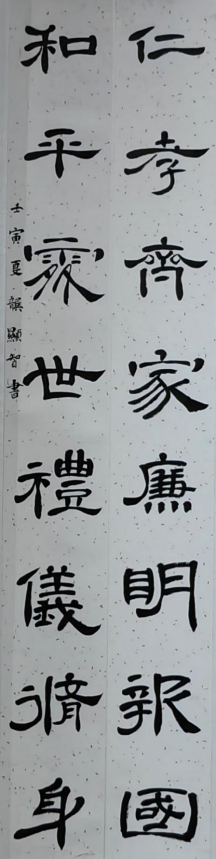 仁孝齊家廉明報國
和平處世禮儀脩身
壬寅夏韻顯智書